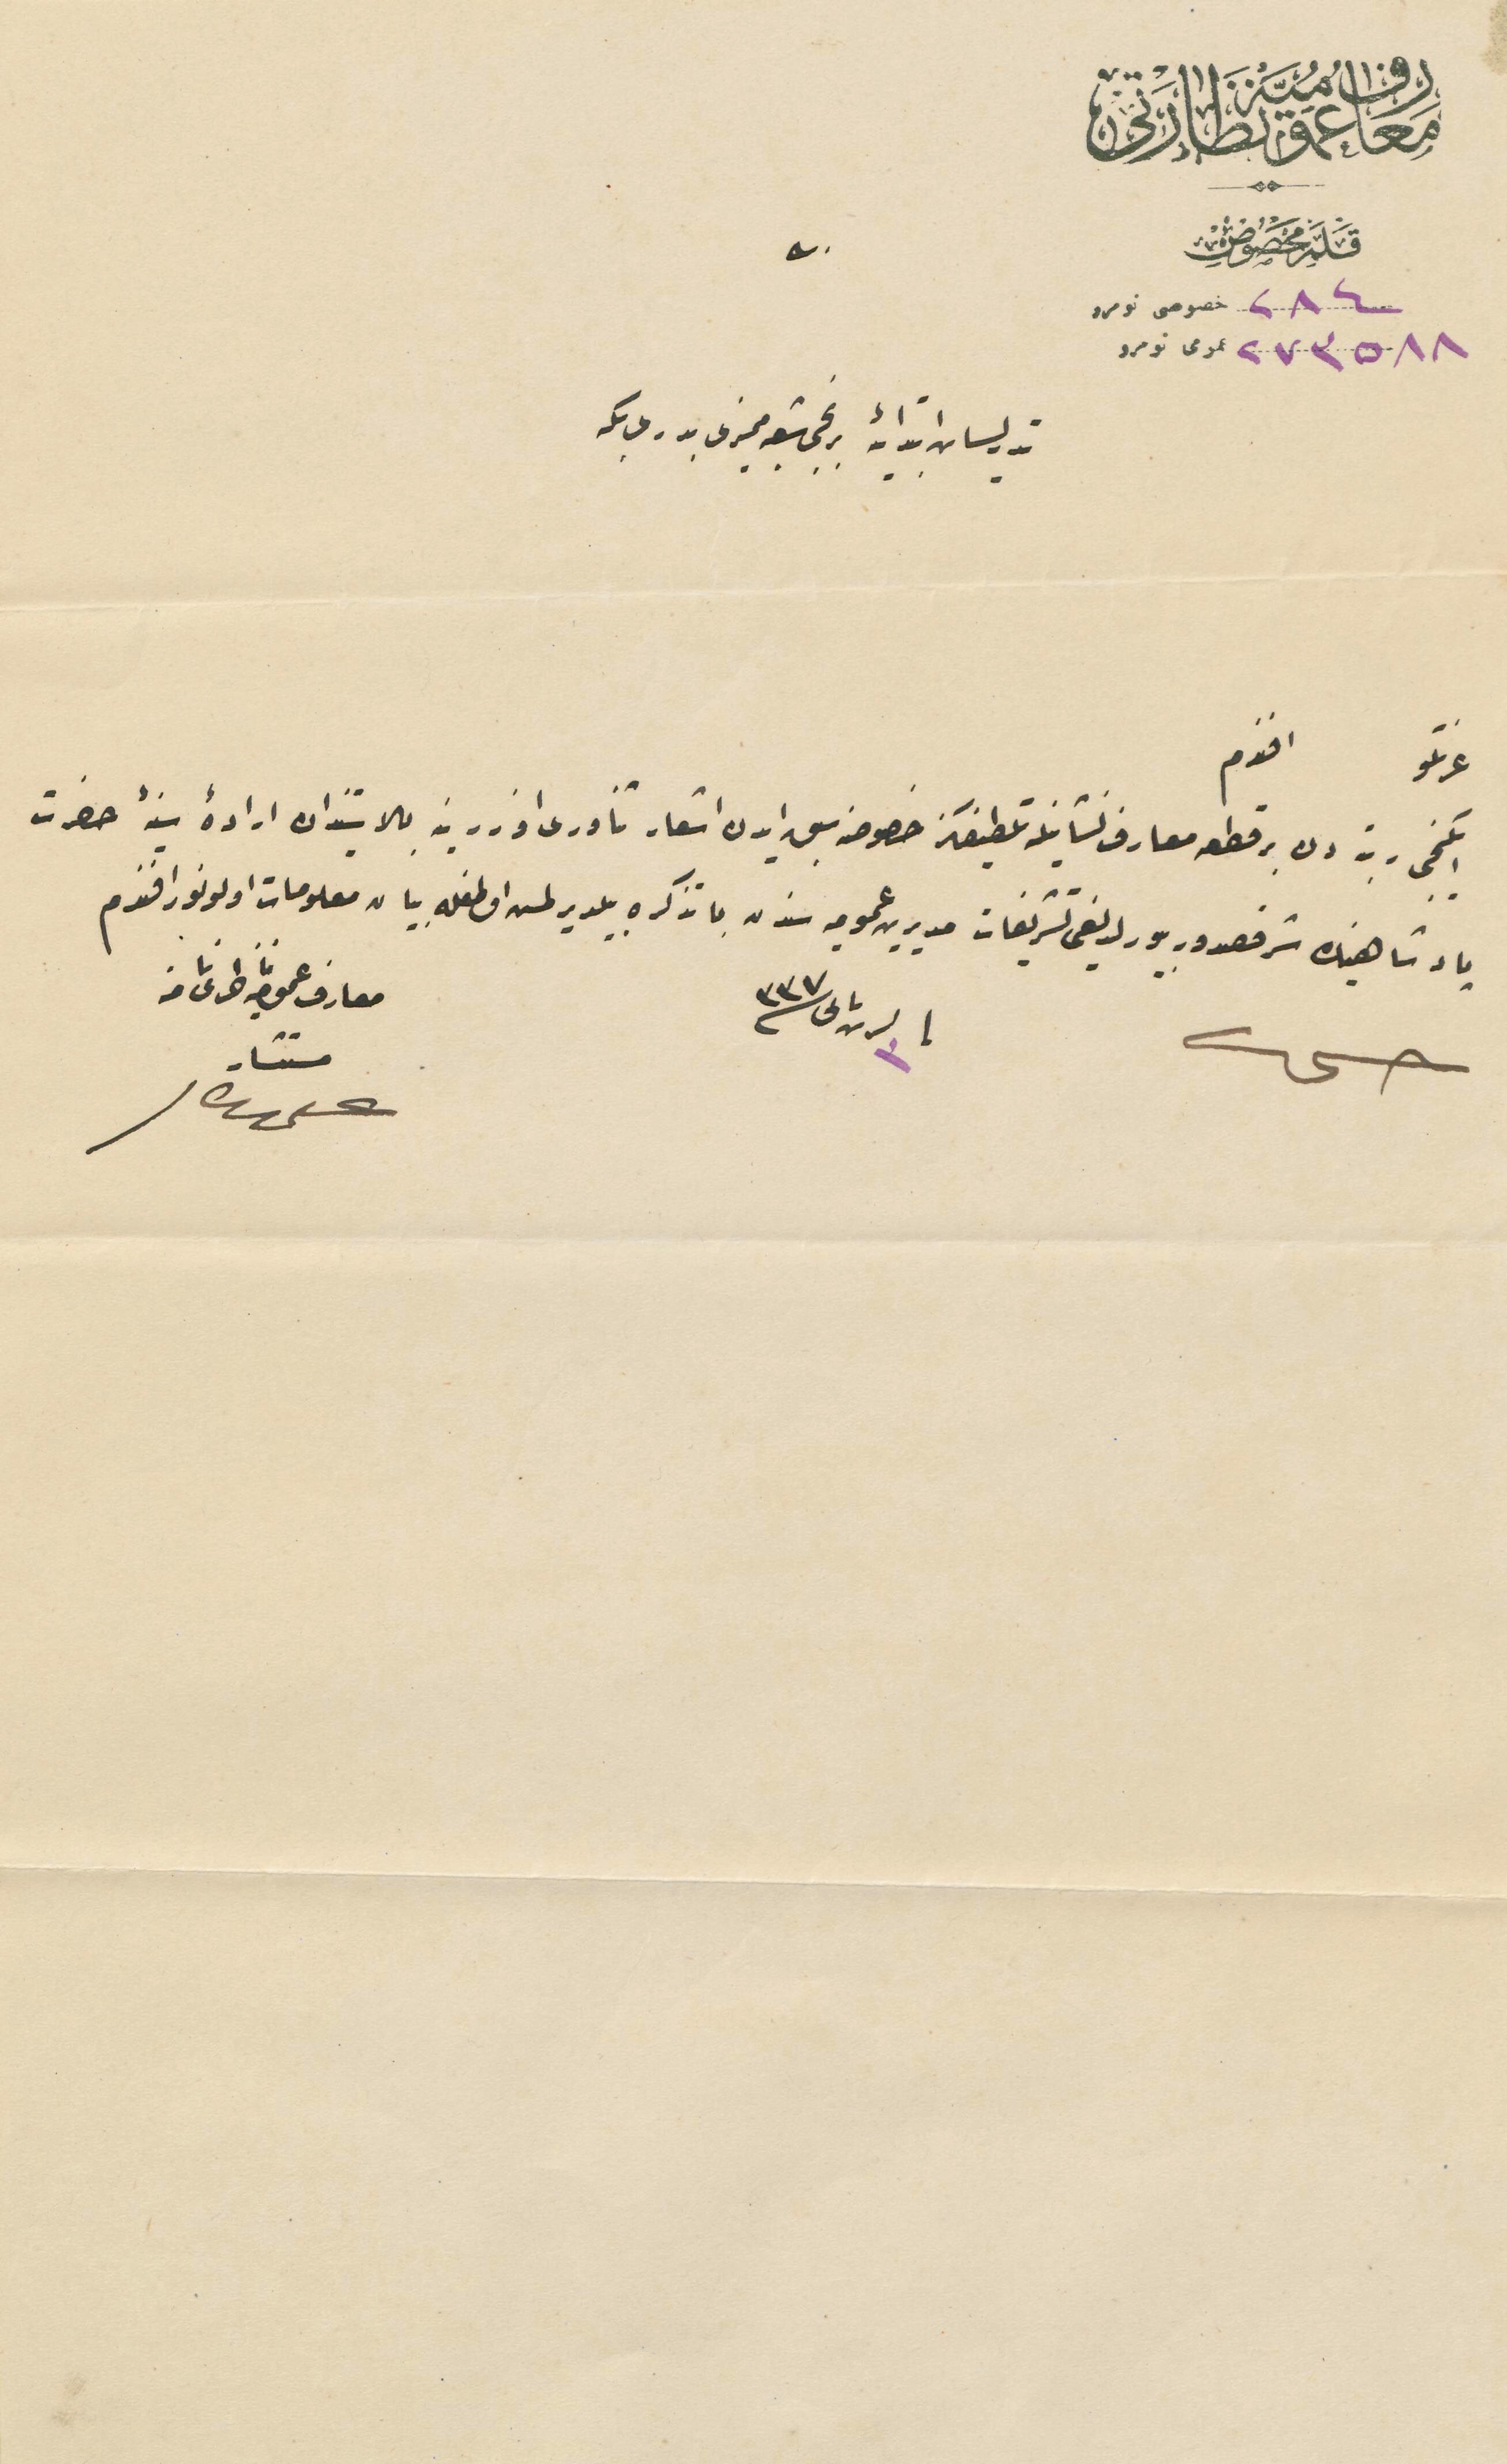 معارف عمومیه نظارتی
قلم مخصوص
خصوصی نومرو ٢٨٤
عمومی نومرو ٢٧٣٥٨٨
تدریسات ابتدائیه برنجی شعبه ممیزی بدری بكه
عزتلو افندم
ایكنجی رتبه دن بر قطعه معارف نشانیله تلطیفكز خصوصنه سبق ایدن اشعار ناوری اوزرینه بالاستیذان ارادۀ سنیۀ حضرت
پادشاهینك شرفصدور بیورلدیغی تشریفات مدیریت عمومیه سندن با تذكره بیلدیرلمش اولمغله بیان معلومات اولونور افندم
كانون ثانی ٣٣٧
معارف عمومیه ناظری نامنه
مستشار